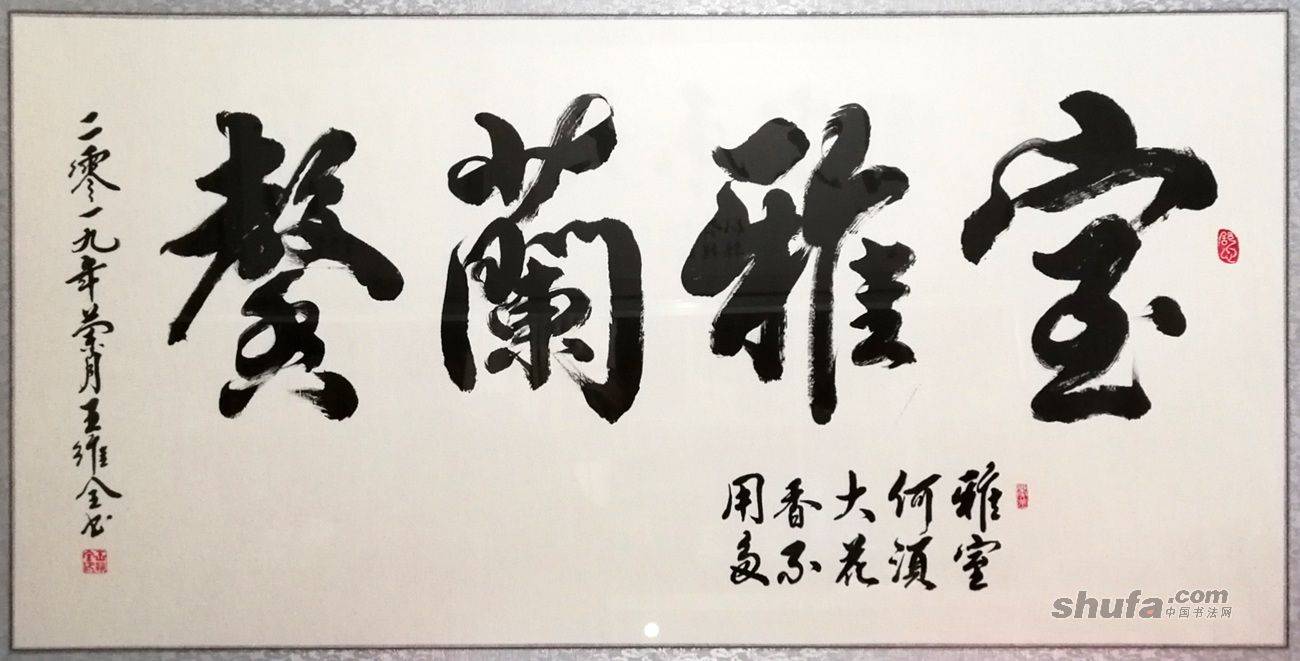 室雅蘭馨
雅室
何須
大花
香不
用多
二零一九年月王維全书
shufa.com
中国书法网